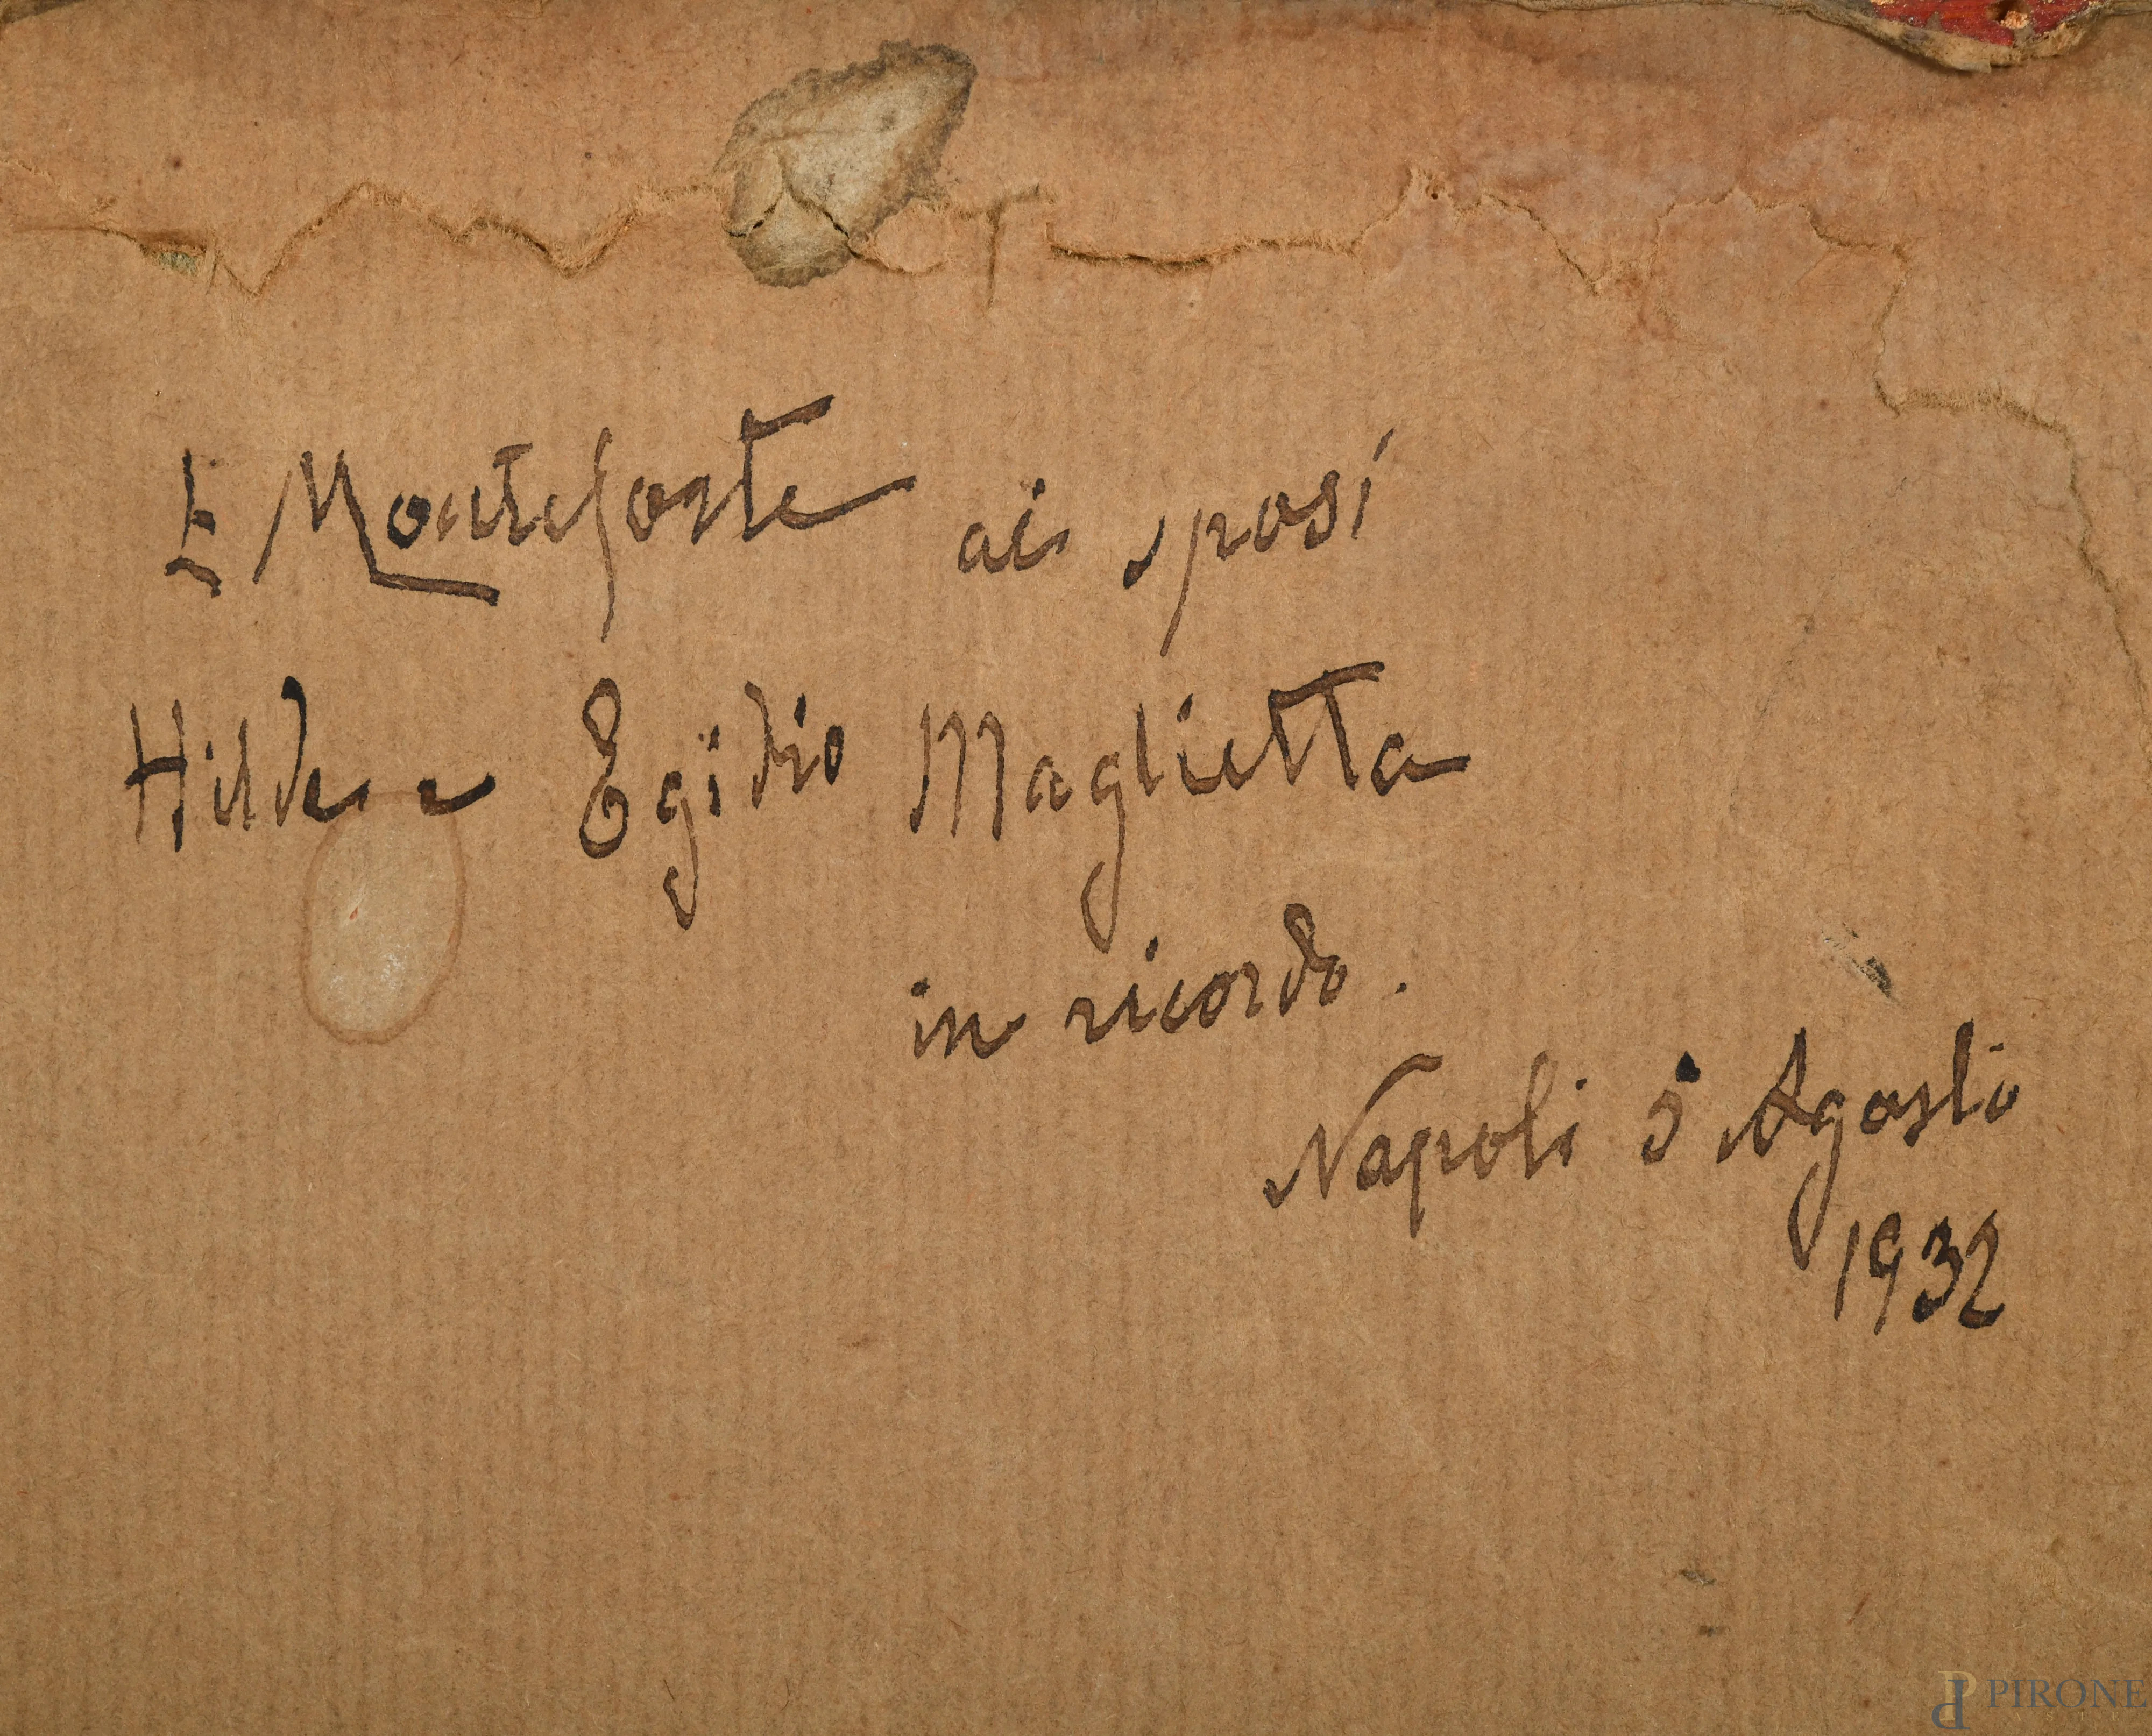 E Monteforte ai sposi
Hilda e Egidio Maglietta
in ricordo.
Napoli 5 Agosto
1932
PIRONE